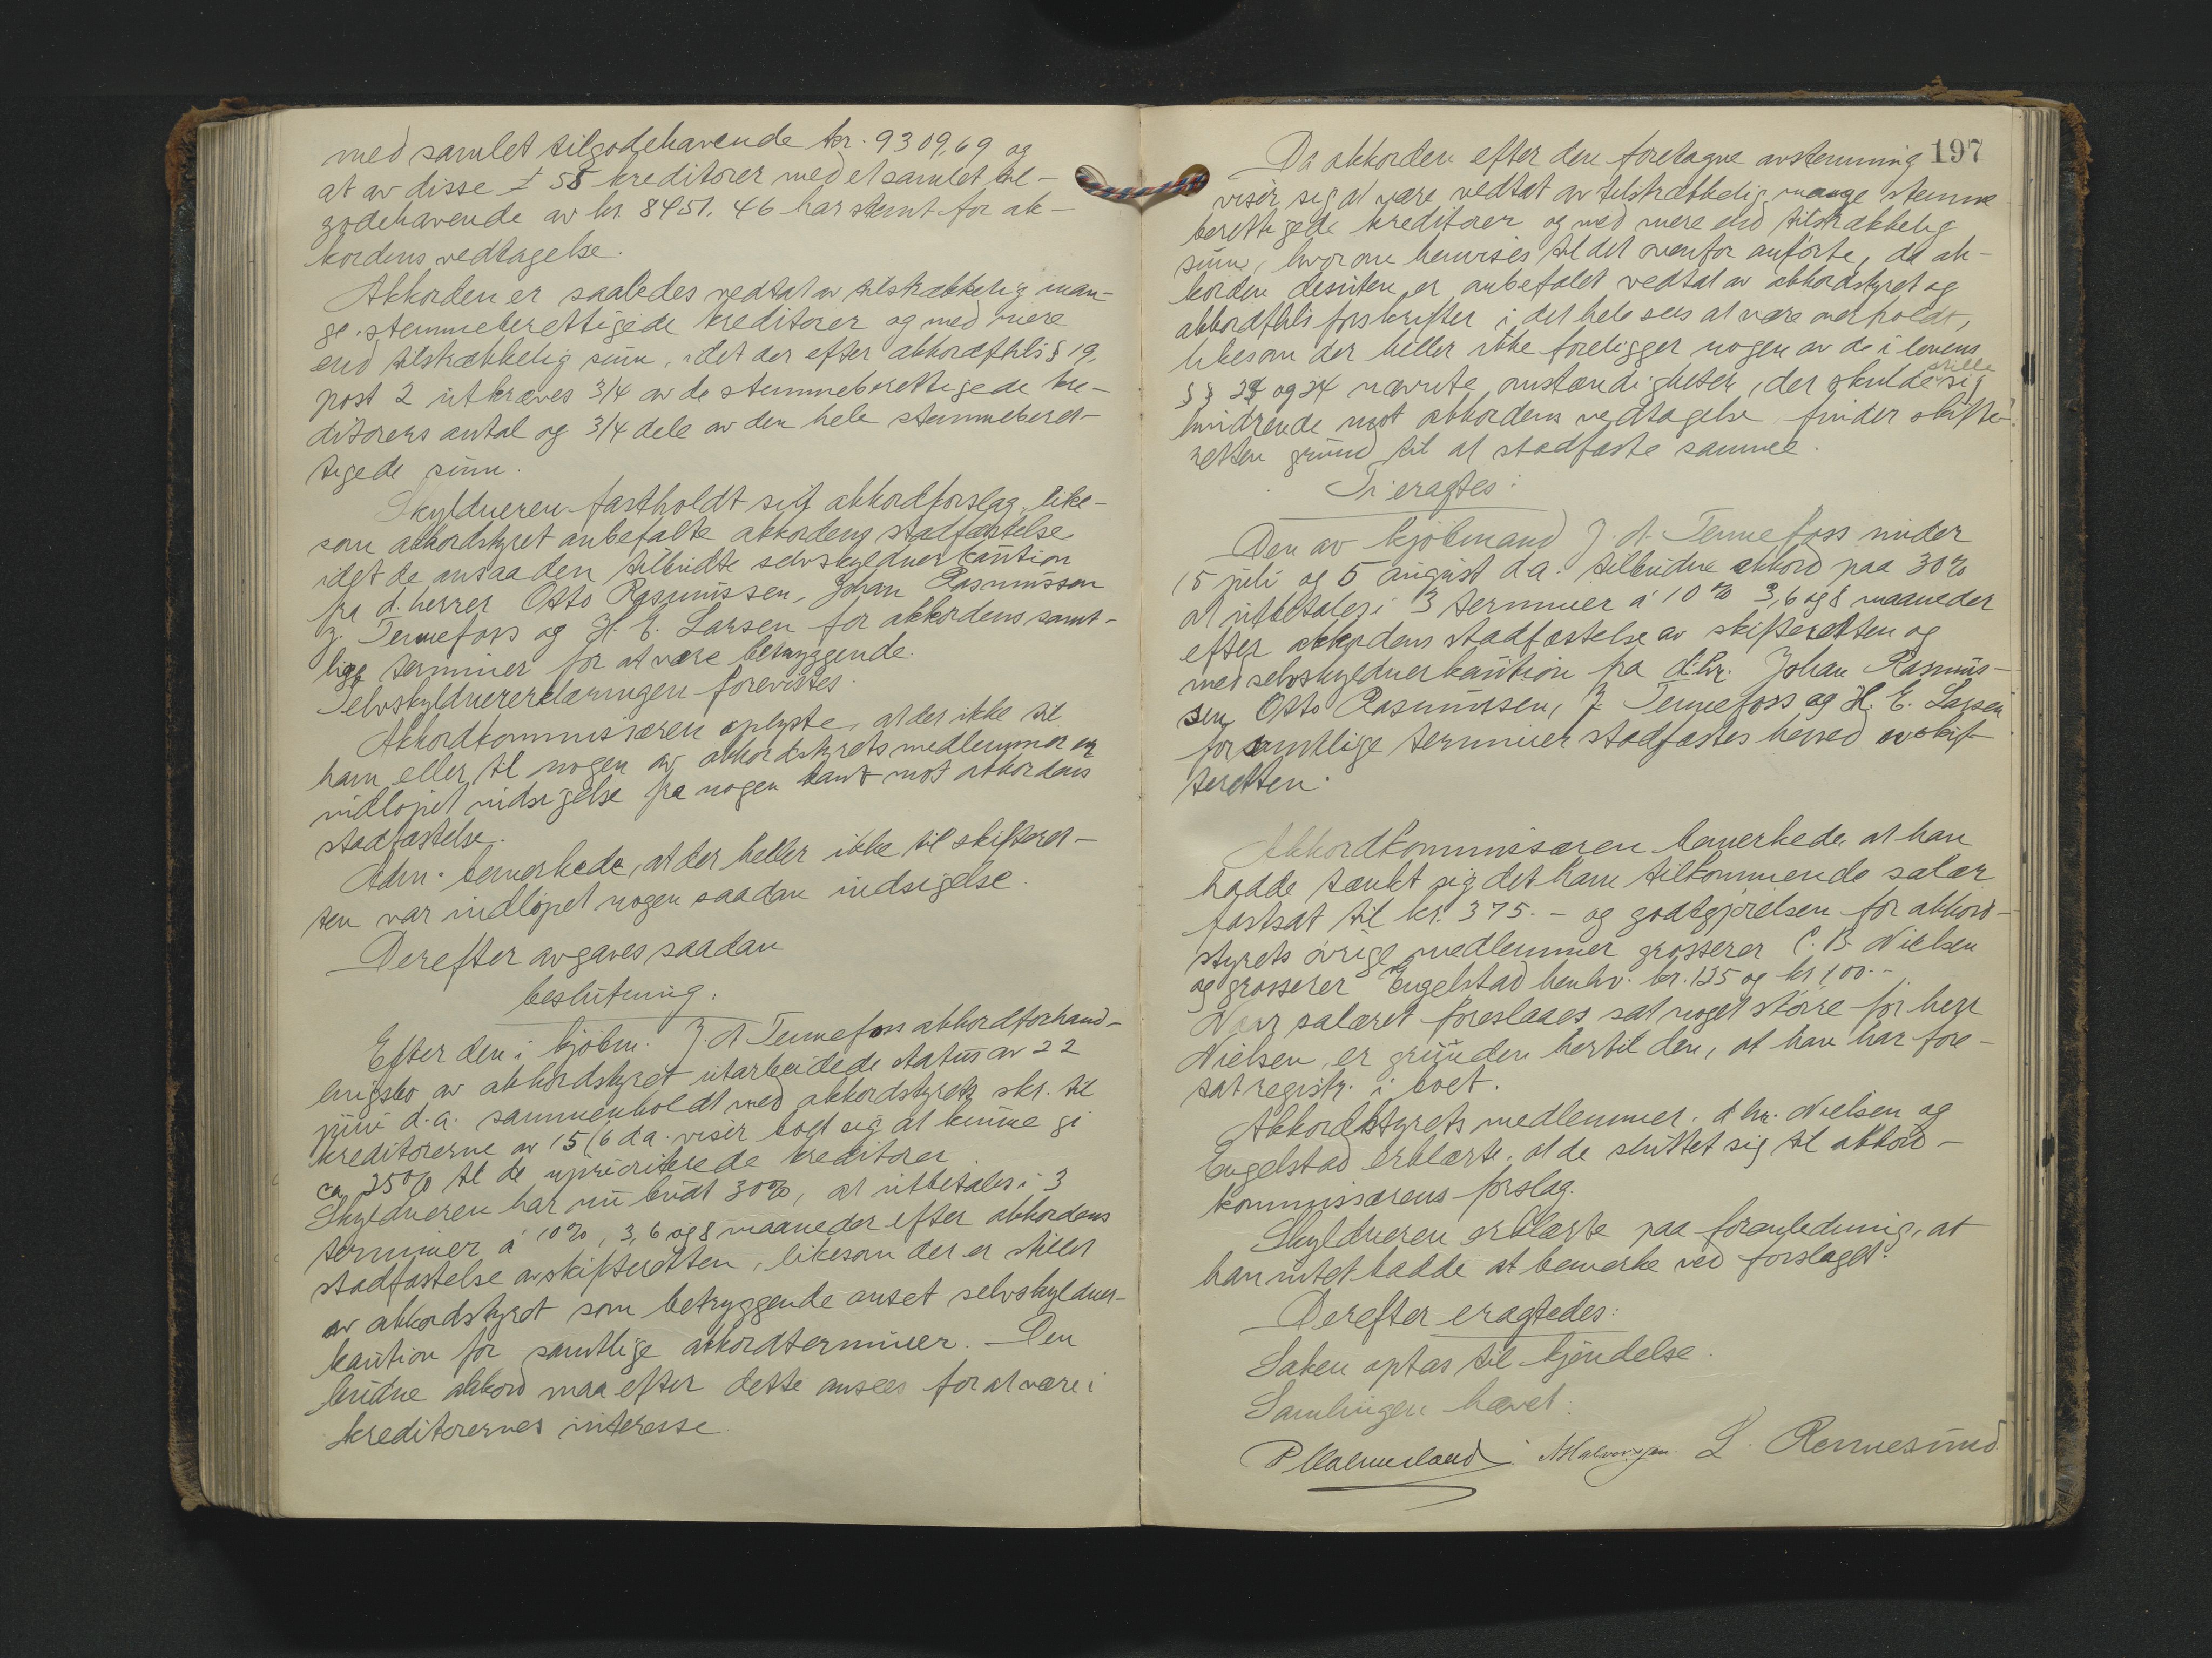 med samlet tilgodehavende kr. 9309,69 og
at av disse 58 kreditorer med et samlet til-
godehavende av kr. 8451.46 har stemt for ak-
kordens vedtagelse.
Akkorden er saaledes vedtat av tilstrækkelig man-
ge stemmeberettigede kreditorer og med mere
end tilstrækkelig sum, idet der efter akkordfhls § 19,
post 2 utkræves 3/4 av de stemmeberettigede kre-
ditorers antal og 3/4 dele av den hele stemmeberet-
tigede sum.
Skyldneren fastholdt sit akkordforslag, like-
som akkordstyret anbefalte akkordens stadfæstelse
idet de ansaa den tilbudte selvskyldnerkaution
fra d. herrer Otto Rasmussen, Johan Rasmussen
J. Tennefoss og H. E. Larsen for akkordens samt-
lige terminer for at være betryggende.
Selvskyldnererklæringen forevistes.
Akkordkommissæren oplyste, at der ikke til
ham eller til nogen av akkordstyrets medlemmer er
indløpet indsigelse fra nogen kant mot akkordens
stadfæstelse.
Adm. bemerkede, at der heller ikke til skifteret-
ten var indløpet nogen saadan indsigelse.
Derefter avgaves saadan
beslutning:
Efter den i kjøbm. J. A. Tennefoss akkordforhand-
lingsbo av akkordstyret utarbeidede status av 22
juni d.a. sammenholdt med akkordstyrets skr. til
kreditorerne av 15/6 d.a. viser boet sig at kunne gi
ca 25% til de uprioriterede kreditorer.
Skyldneren har nu budt 30%, at utbetales i 3
terminer á 10%, 3, 6 og 8 maaneder efter akkordens
stadfæstelse av skifteretten, likesom der er stillet
av akkordstyret som betryggende anset selvskyldner-
kaution for samtlige akkordterminer. – Den
budne akkord maa efter dette ansees for at være i
kreditorernes interesse.
197
Da akkorden efter den foretagne avstemning
viser sig at være vedtat av tilstrækkelig mange stemme-
berettigede kreditorer og med mere end tilstrækkelig
sum, hvorom henvises til det ovenfor anførte, da ak-
korden desuten er anbefalet vedtat av akkordstyret og
akkordfhls forskrifter i det hele sees at være overholdt,
likesom der heller ikke foreligger nogen av de i lovens
§§ og 24 nævnte omstændigheter, der skulde stille sig
hindrende mot akkordens vedtagelse finder skifte-
retten grund til at stadfæste samme.
Ti eragtes:
Den av kjøbmand J. A. Tennefoss under
15 juli og 5 august d.a. tilbudne akkord paa 30%
at utbetales i 3 terminer á 10% 3, 6 og 8 maaneder
efter akkordens stadfæstelse av skifteretten og
med selvskyldnerkaution fra d'hr. Johan Rasmus-
sen, Otto Rasmussen, J. Tennefoss og H. E. Larsen
for samtlige terminer stadfæstes herved av skif-
teretten.
Akkordkommissæren bemerkede at han
hadde tænkt sig det ham tilkommende salær
fastsat til kr. 375.– og godtgjørelsen for akkord-
styrets øvrige medlemmer grosserer C. B. Nielsen
og grosserer Engelstad henhv. kr. 125 og kr 100.–
Naar salæret foreslaaes sat noget større for herr
Nielsen, er grunden hertil den, at han har fore-
tat registr. i boet.
Akkordstyrets medlemmer. d hr. Nielsen og
Engelstad erklærte, at de sluttet sig til akkord-
kommissærens forslag.
Skyldneren erklærte paa foranledning, at
han intet hadde at bemerke ved forslaget.
Derefter eragtedes:
Saken optas til kjendelse.
Samlingen hævet.
A Halvorsen. L. Rennesund